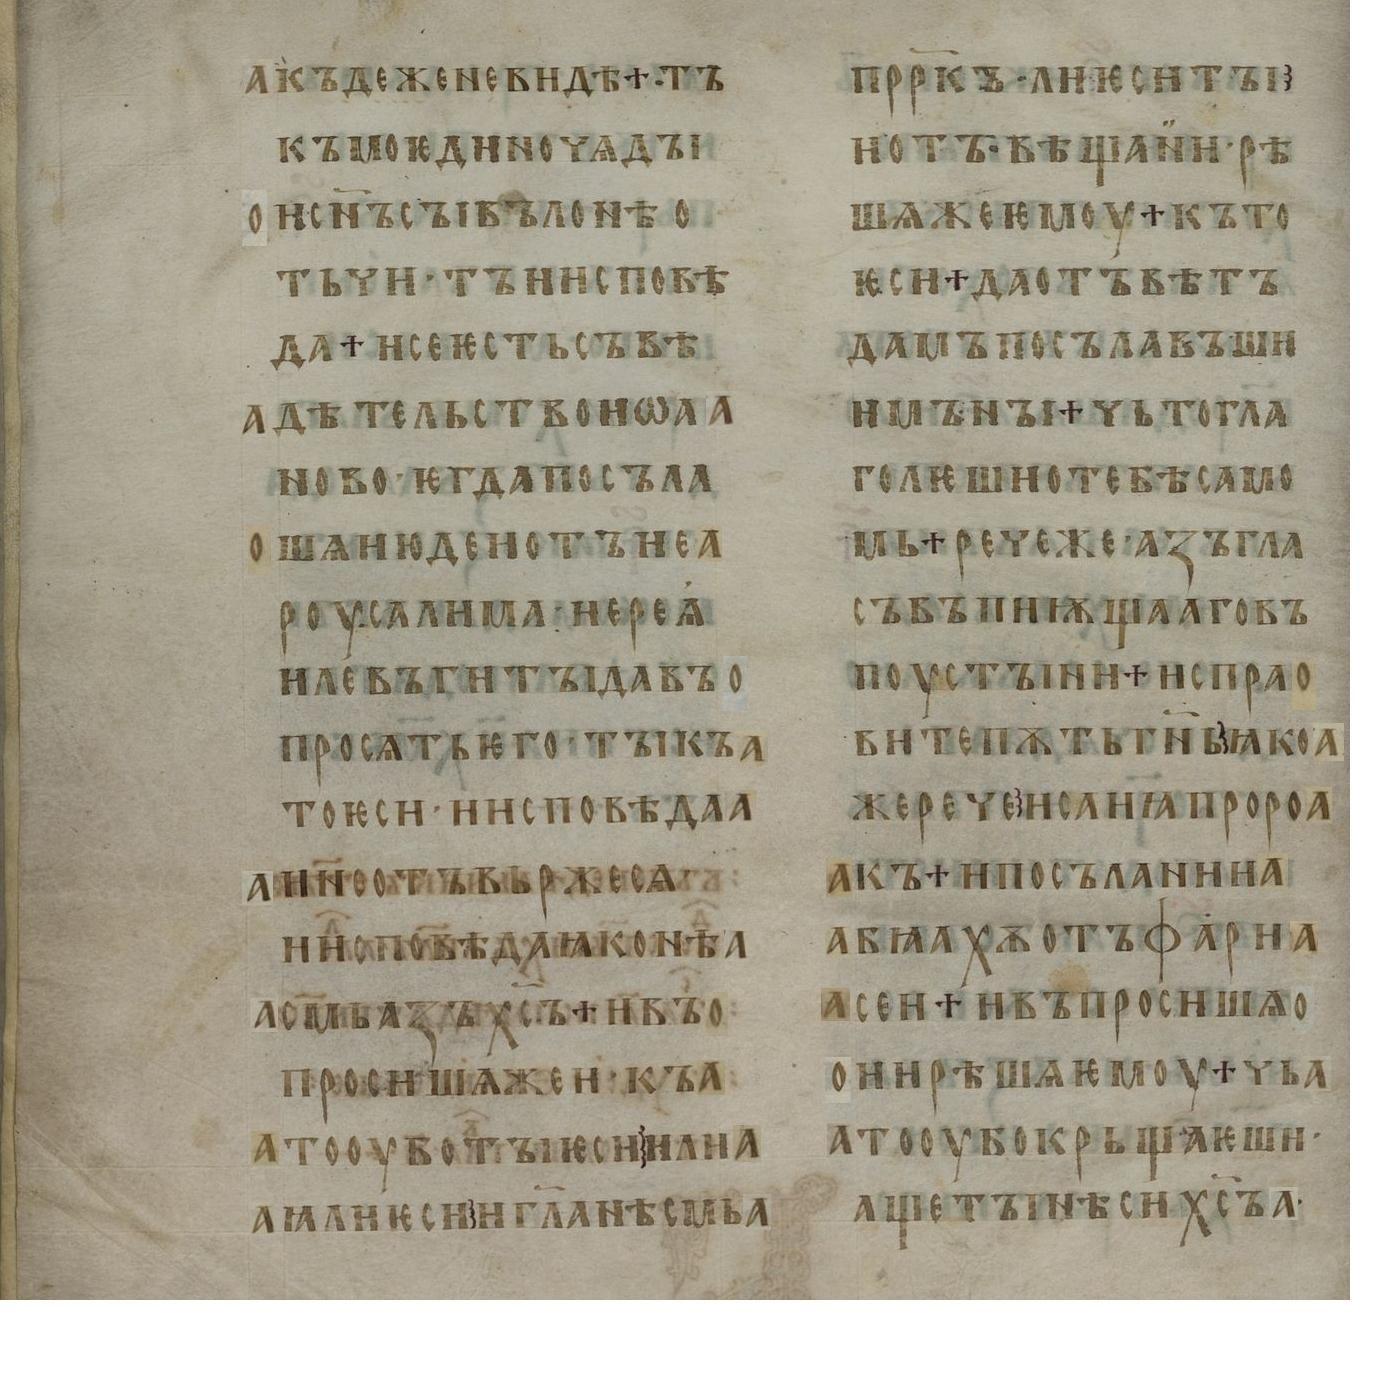 АКЪДЕЖЕНЕВИДѢ+·ТЪ
КЪМОѤДИНОЧѦДЪІ
ОИСН҃ЪСЪІВЪЛОНѢ О
ТЬЧИ·ТЪИИСПОВѢ
ДА+ИСЕѤСТЬСЪВѢ
АДѢТЕЛЬСТВОИѠАА
НОВО·ѤГДАПОСЪЛА
ОШѦИЮДЕИОТЪИЕА
РОУСАЛИМА·ИЕРЕѦ
ИЛЕВЪГИТЪІДАВЪО
ПРОСѦТЬѤГО·ТЪІКЪА
ТОѤСИ·ИИСПОВѢДАА
АИН҃ЕООТЪВЬРЖЕСѦ
ИИСПОВѢДАꙖКОНѢА
АСМ҃ЬАЗЪХС҃Ъ+ИВЪО
ПРОСИШѦЖЕИ·КЪА
АТООУБОТЪІѤСИ⁝ИЛИА
АꙖЛИѤСИ⁝ИГЛ҃АНѢСМЬА
ПРР҃КЪ·ЛИѤСИТЪІ⁝
ИОТЪ·ВѢЩАИИ·РѢ
ШѦЖЕѤМОУ+КЪТО
ѤСИ+ДАОТЪВѢТЪ
ДАМЪПОСЪЛАВЪШИ
ИМЪ·НЪІ+ЧЬТОГЛА
ГОЛѤШИОТЕБѢСАМО
МЬ+РЕЧЕЖЕ·АЗЪГЛА
СЪВЪПИѬЩААГОВЪ
ПОУСТЪІНИ+ИСПРАО
ВИТЕПѪТЬГН҃Ь⁝ꙖКОА
ЖЕРЕЧЕ⁝ИСАИꙖПРОРОА
АКЪ+ИПОСЪЛАНИИА
АБѢАХѪОТЪФАРИА
АСЕИ+ИВЪПРОСИШѦО
ОИИРѢШѦѤМОУ+ЧЬА
АТООУБОКРЬЩАѤШИ·
АЩЕТЪІНѢСИХС҃ЪА·